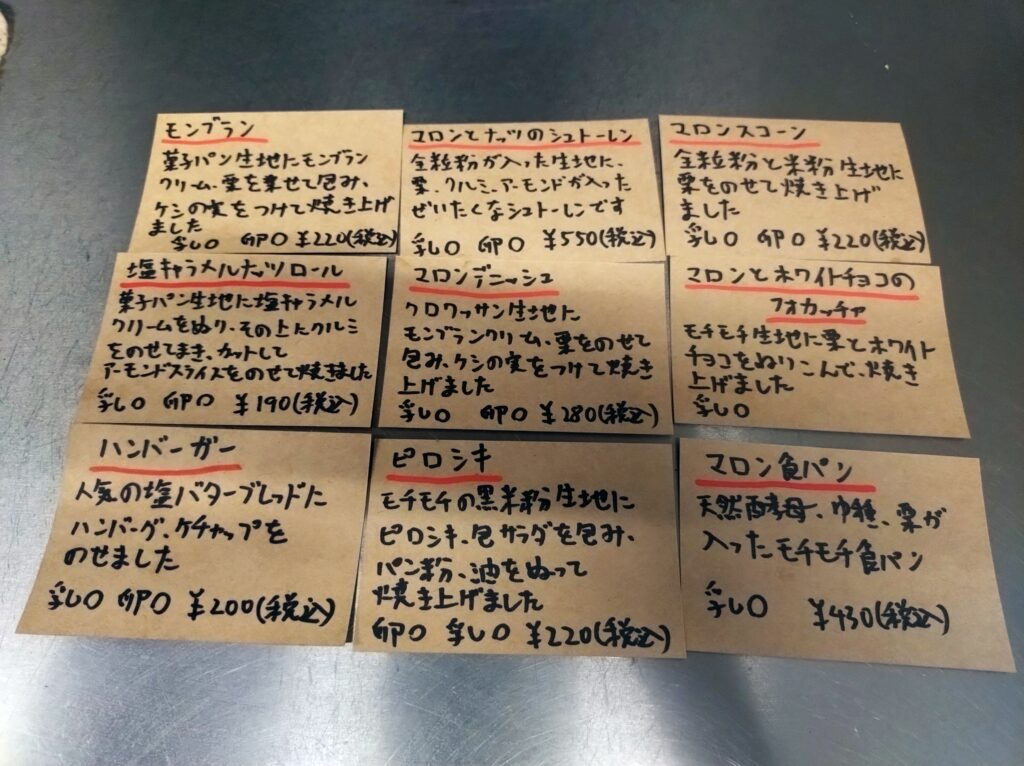 モンブラン
菓子パン生地にモンブラン
クリーム、栗を乗せて包み、
ケシの実をつけて焼き上げ
ました
乳〇 卵〇 ¥220(税込)
マロンとナッツのシュトーレン
全粒粉が入った生地に、
栗、クルミ、アーモンドが入った
ぜいたくなシュトーレンです
乳〇 卵〇 ¥550(税込)
マロンスコーン
全粒粉と米粉生地に
栗をのせて焼き上げ
ました
乳〇 卵〇 ¥220(税込)
塩キャラメルナッツロール
菓子パン生地に塩キャラメル
クリームをぬり、その上にクルミ
をのせてまき、カットして
アーモンドスライスをのせて焼きました
乳〇 卵〇 ¥190(税込)
マロンデニッシュ
クロワッサン生地に
モンブランクリーム、栗をのせて
包み、ケシの実をつけて焼き
上げました
乳〇 卵〇 ¥280(税込)
マロンとホワイトチョコの
フォカッチャ
モチモチ生地に栗とホワイト
チョコをぬりこんで、焼き
上げました
乳〇
ハンバーガー
人気の塩バターブレッドに
ハンバーグ、ケチャップを
のせました
乳〇 卵〇 ¥200(税込)
ピロシキ
モチモチの黒米粉生地に
ピロシキ、包サラダを包み、
パン粉、油をぬって
焼き上げました
卵〇 乳〇 ¥220(税込)
マロン食パン
天然酵母、中種、栗が
入ったモチモチ食パン
乳〇 ¥430(税込)